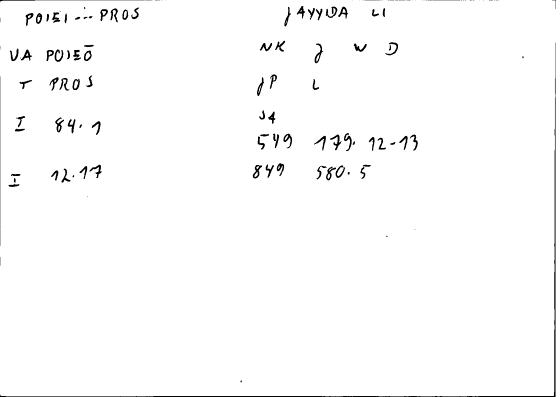 POIEI ... PROS JAYYIDA LI
VA POIEŌ NK J W D
T PROS JP L
I 84.1 J4
549 179.12-13
I 12.17 849 580.5